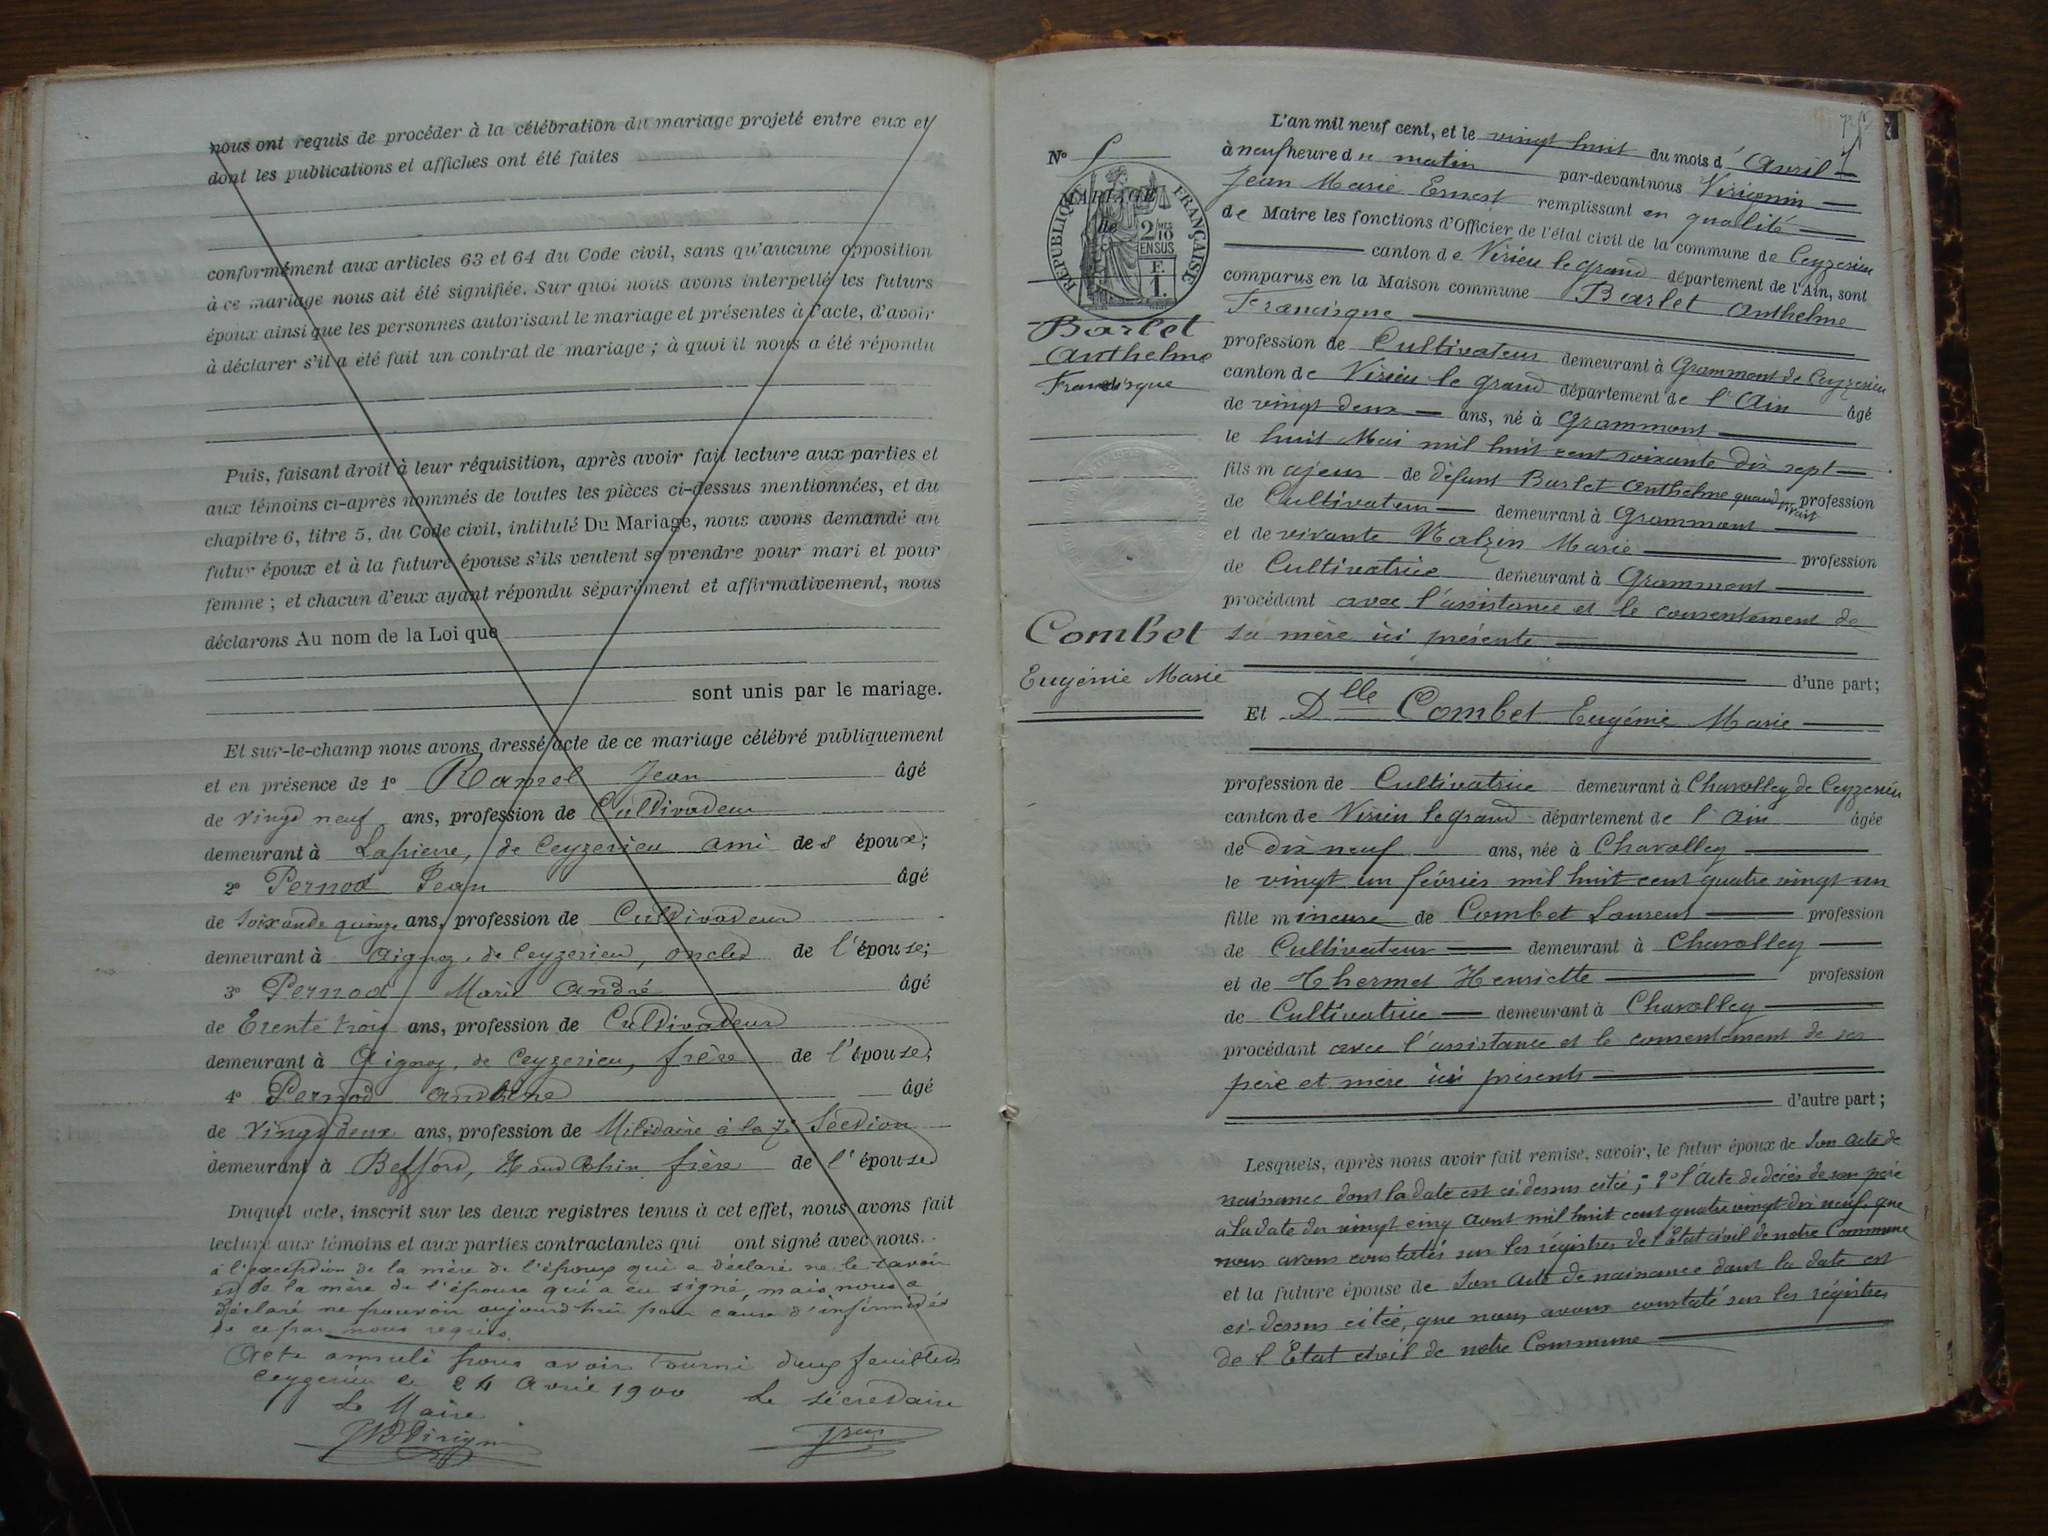 nous ont requis de procéder à la célébration du mariage projeté entre eux et
dont les publications et affiches ont été faites
conformément aux articles 63 et 64 du Code civil, sans qu'aucune opposition
à ce mariage nous ait été signifiée. Sur quoi nous avons interpellé les futurs
époux ainsi que les personnes autorisant le mariage et présentes à l'acte, d'avoir
à déclarer s'il a été fait un contrat de mariage ; à quoi il nous a été répondu
Puis, faisant droit à leur réquisition, après avoir fait lecture aux parties et
aux témoins ci-après nommés de toutes les pièces ci-dessus mentionnées, et du
chapitre 6, titre 5, du Code civil, intitulé Du Mariage, nous avons demandé au
futur époux et à la future épouse s'ils veulent se prendre pour mari et pour
femme ; et chacun d'eux ayant répondu séparément et affirmativement, nous
déclarons Au nom de la Loi que
sont unis par le mariage.
Et sur-le-champ nous avons dressé acte de ce mariage célébré publiquement
et en présence de 1° Ramel Jean âgé
de vingt neuf ans, profession de Cultivateur
demeurant à Lapierre, de Ceyzerieu ami des époux;
2° Pernod Jean âgé
de soixante quinze ans, profession de Cultivateur
demeurant à Aignoz, de Ceyzerieu, oncle de l'épouse;
3° Pernod Marie André âgé
de Trente trois ans, profession de Cultivateur
demeurant à Aignoz, de Ceyzerieu, frère de l'épouse;
4° Pernod Anthelme âgé
de vingt deux ans, profession de Militaire à la 7e Section
demeurant à Belfort, Haut Rhin frère de l'épouse
Duquel acte, inscrit sur les deux registres tenus à cet effet, nous avons fait
lecture aux témoins et aux parties contractantes qui ont signé avec nous.
à l'exception de la mère de l'époux qui a déclaré ne le savoir
et de la mère de l'épouse qui a su signé, mais nous a
déclaré ne pouvoir aujourd'hui pour cause d'infirmités
de ce par nous requis.
Acte annulé pour avoir tourné deux feuillets
Ceyzerieu le 24 Avril 1900 Le secrétaire
Le Maire
N° 5
L'an mil neuf cent, et le vingt huit du mois d'Avril
à neuf heure du matin par-devant nous Virignin
Jean Marie Ernest remplissant en qualité
de Maire les fonctions d'Officier de l'état civil de la commune de Ceyzerieu
canton de Virieu le grand département de l'Ain, sont
comparus en la Maison commune Barlet Anthelme
Francisque
profession de Cultivateur demeurant à Grammont de Ceyzerieu
canton de Virieu le grand département de l'Ain âgé
de vingt deux ans, né à Grammont
le huit Mai mil huit cent soixante dix sept
fils majeur de défunt Barlet Anthelme quand vivait profession
de Cultivateur demeurant à Grammont
et de vivante Malzin Marie profession
de Cultivatrice demeurant à Grammont
procédant avec l'assistance et le consentement de
sa mère ici présente
d'une part;
MARIAGE
de
RÉPUBLIQUE FRANÇAISE
2/10 MES
EN SUS
F.
1.
Barlet
Anthelme
Francisque
Combet
Eugénie Marie
Et Dlle Combet Eugénie Marie
profession de Cultivatrice demeurant à Chavolley de Ceyzerieu
canton de Virieu le grand département de l'Ain âgée
de dix neuf ans, née à Chavolley
le vingt un février mil huit cent quatre vingt un
fille mineure de Combet Laurent profession
de Cultivateur demeurant à Chavolley
et de Thermet Henriette profession
de Cultivatrice demeurant à Chavolley
procédant avec l'assistance et le consentement de ses
père et mère ici présents
d'autre part;
Lesquels, après nous avoir fait remise, savoir, le futur époux de son acte de
naissance dont la date est ci-dessus citée; 2° l'Acte de décès de son père
à la date du vingt cinq Aout mil huit cent quatre vingt dix neuf, que
nous avons constatés sur les régistres de l'État civil de notre Commune
et la future épouse de son acte de naissance dont la date est
ci-dessus citée, que nous avons constaté sur les régistres
de l'Etat civil de notre Commune